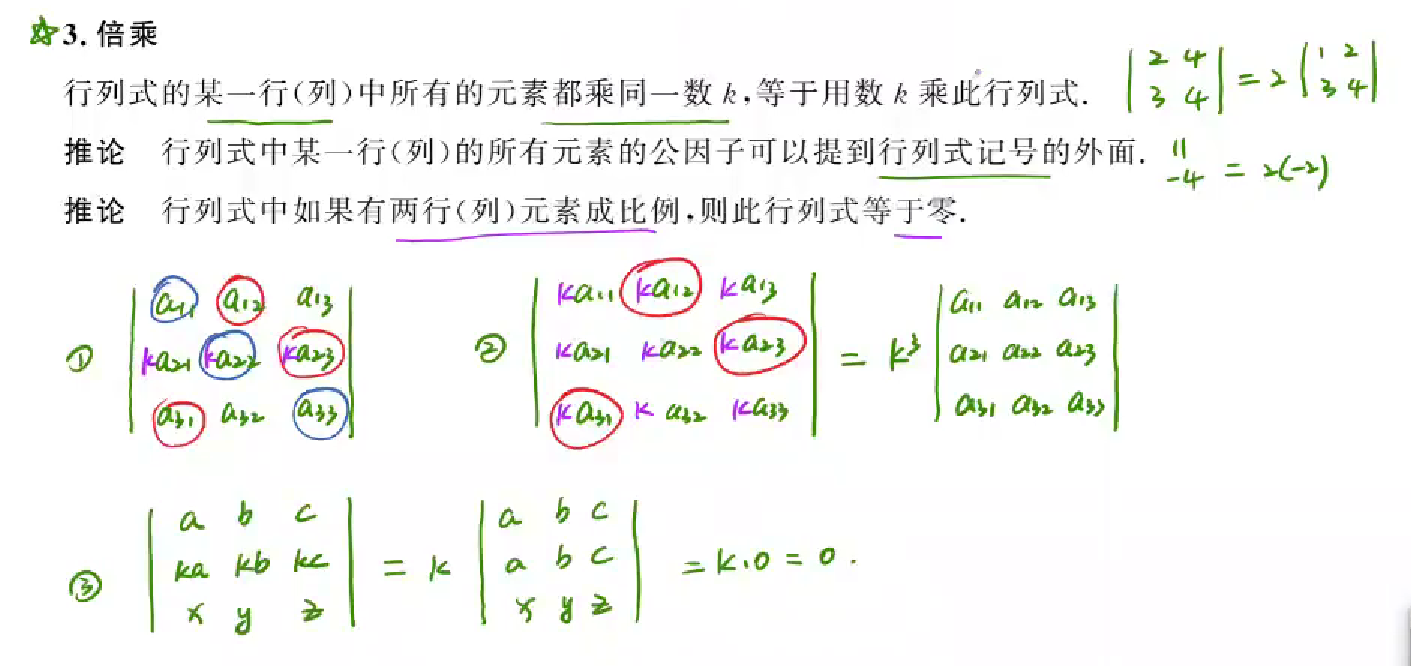 ☆3. 倍乘
行列式的某一行(列)中所有的元素都乘同一数 k,等于用数 k 乘此行列式.
| 2 4 | = 2 | 1 2 |
| 3 4 |     | 3 4 |
推论 行列式中某一行(列)的所有元素的公因子可以提到行列式记号的外面.
-4 = 2(-2)
推论 行列式中如果有两行(列)元素成比例,则此行列式等于零.
①
| a₁₁ a₁₂ a₁₃ |
| ka₂₁ ka₂₂ ka₂₃ |
| a₃₁ a₃₂ a₃₃ |
②
| ka₁₁ ka₁₂ ka₁₃ |   | a₁₁ a₁₂ a₁₃ |
| ka₂₁ ka₂₂ ka₂₃ | = k³ | a₂₁ a₂₂ a₂₃ |
| ka₃₁ ka₃₂ ka₃₃ |   | a₃₁ a₃₂ a₃₃ |
③
| a b c |   | a b c |
| ka kb kc | = k | a b c | = k·0 = 0.
| x y z |   | x y z |